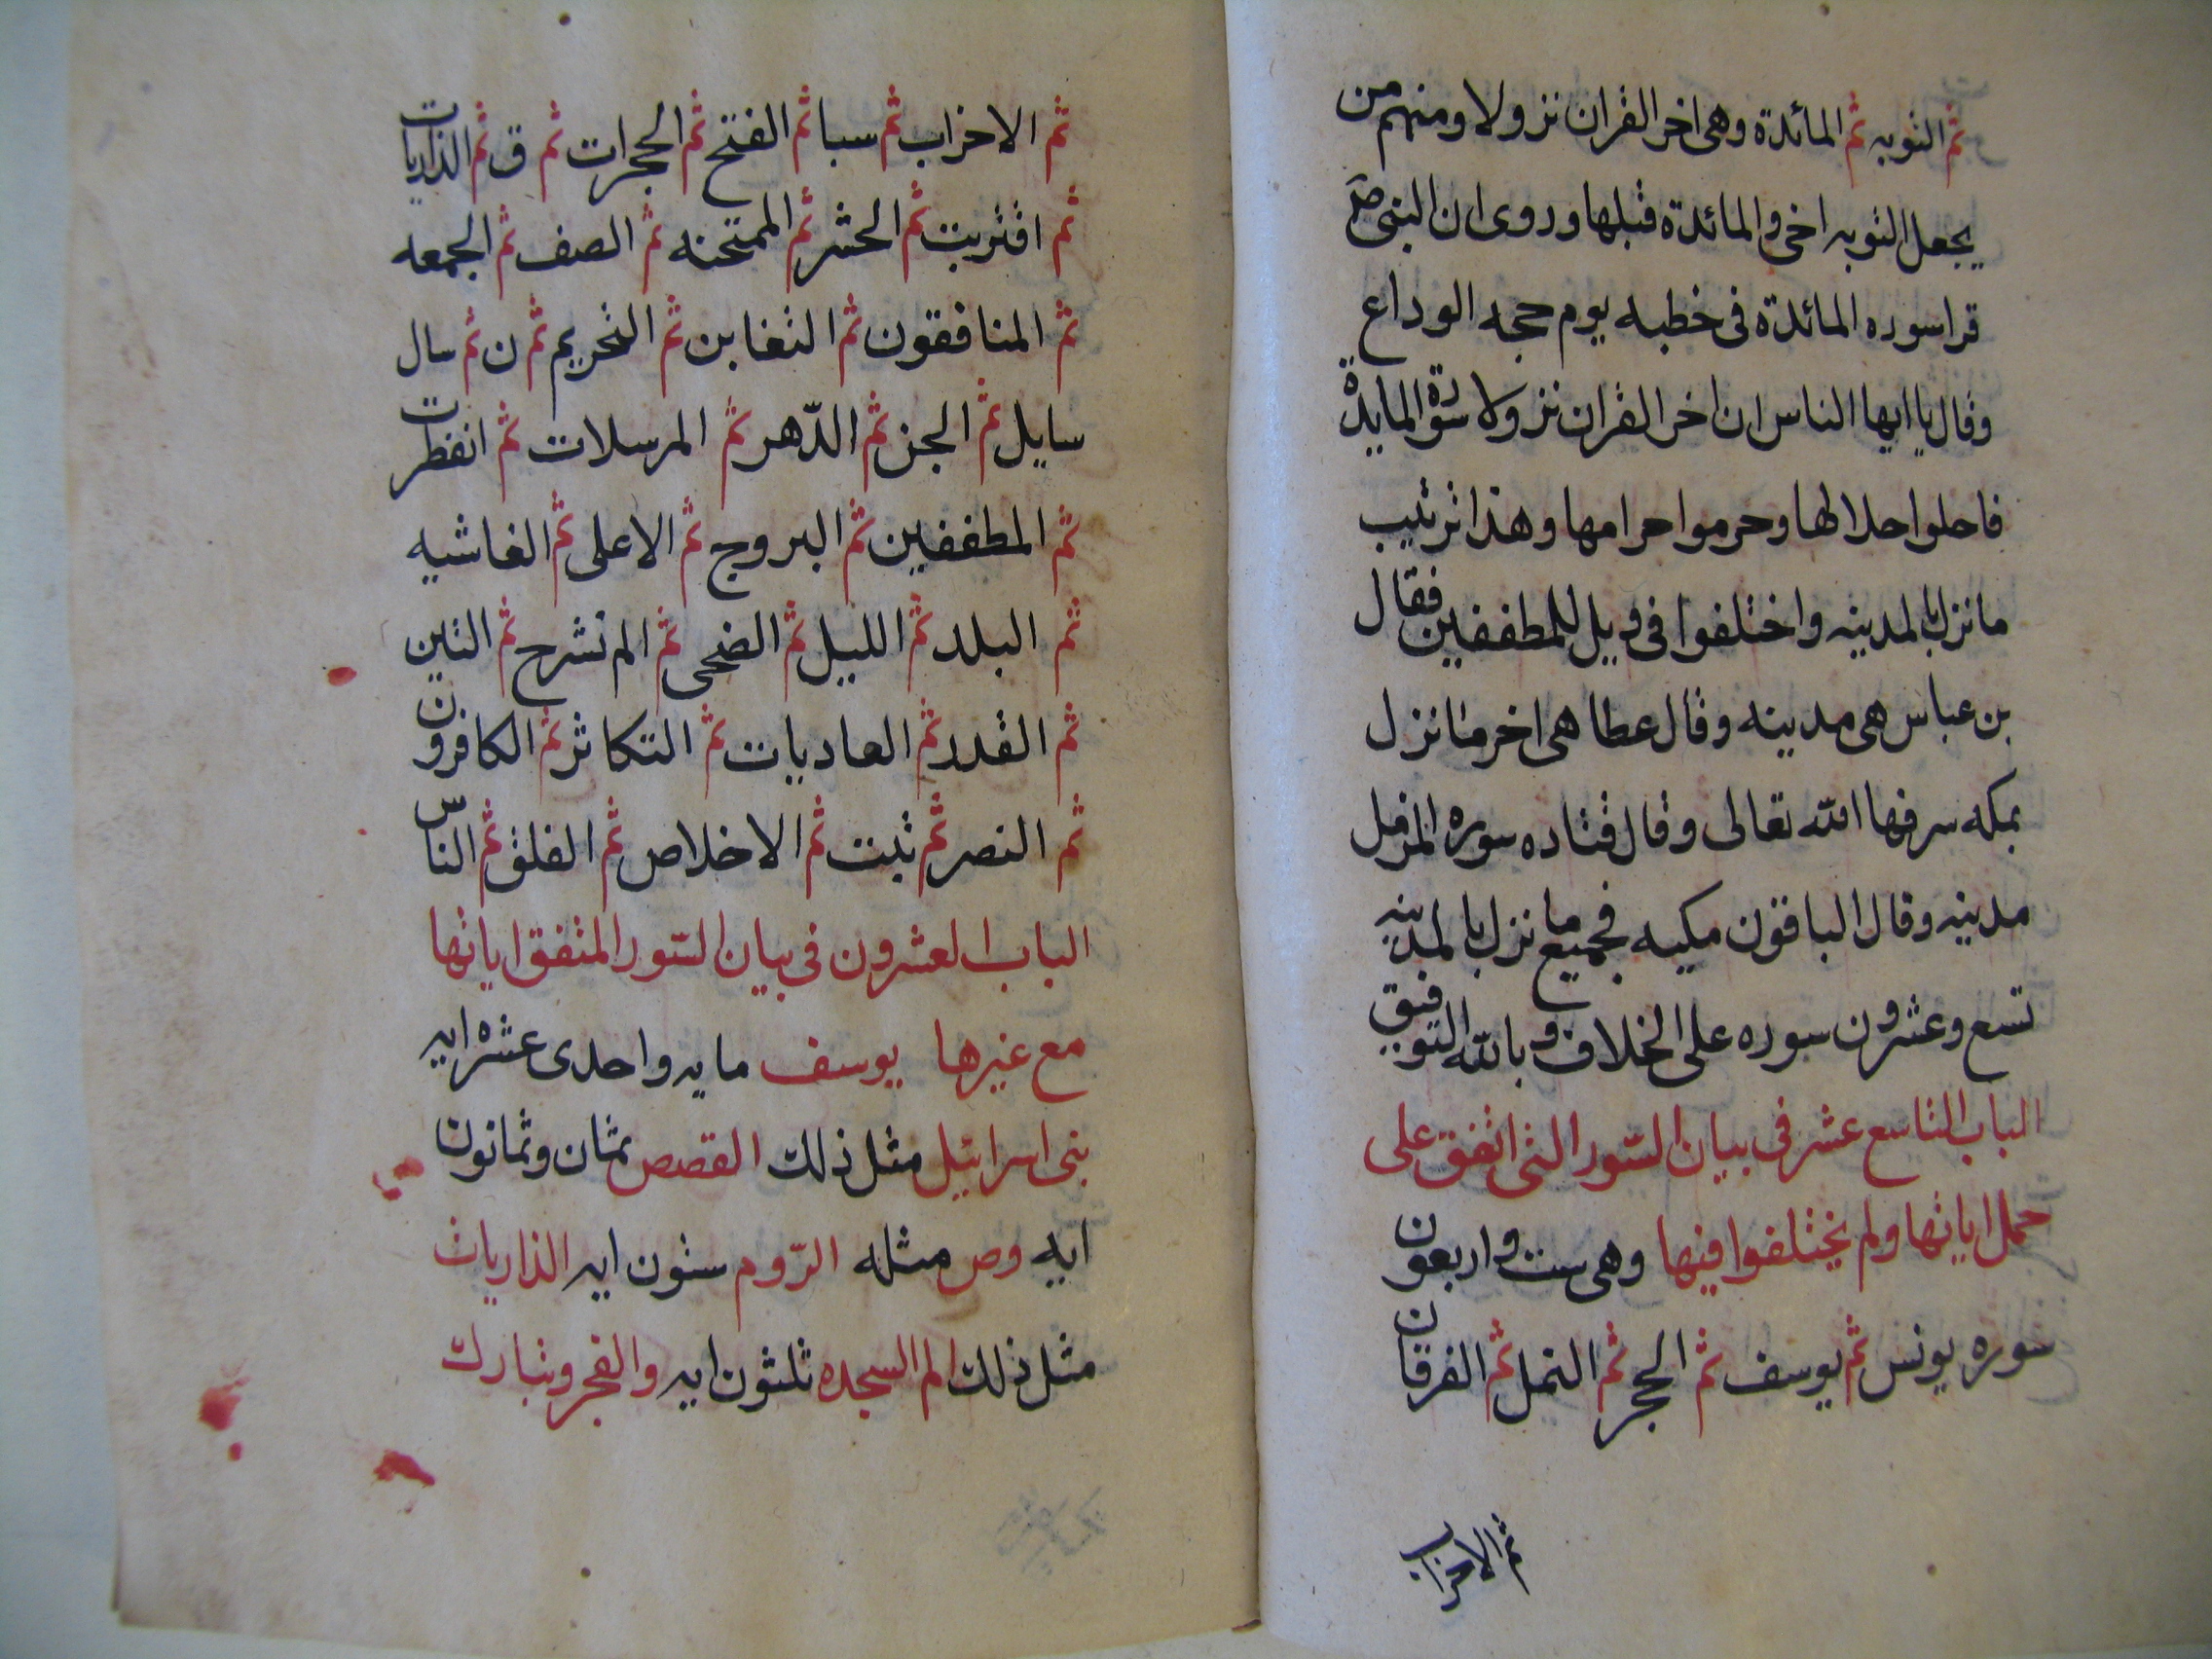 ثم التوبه ثم المائدة وهى اخر القران نزولا ومنهم من
يجعل التوبه اخر والمائدة قبلها وروى ان النبى صلعم
قرا سوره المائدة فى خطبه يوم حجه الوداع
وقال يا ايها الناس ان اخر القران نزولا سورة المايدة
فاحلوا حلالها وحرموا حرامها وهذا ترتيب
ما نزل بالمدينه واختلفوا فى ويل للمطففين فقال
بن عباس هى مدينه وقال عطا هى اخر ما نزل
بمكه سرفها الله تعالى وقال قتاده سوره المزمل
مدينه وقال الباقون مكيه فجميع ما نزل بالمدينه
تسع وعشرون سوره على الخلاف و بالله التوفيق
الباب التاسع عشر فى بيان السّور التى اتفق على
حمل اياتها ولم يختلفوا فيها وهى ست و اربعون
سوره يونس ثم يوسف ثم الحجر ثم النمل ثم الفرقان
ثم الاحزاب
ثم الاحزاب ثم سبا ثم الفتح ثم الحجرات ثم ق ثم الذاريات
ثم اقتربت ثم الحشر ثم الممتحنه ثم الصف ثم الجمعه
ثم المنافقون ثم التغابن ثم التحريم ثم ن ثم سال
سايل ثم الجن ثم الدّهر ثم المرسلات ثم انفطرت
ثم المطففين ثم البروج ثم الاعلى ثم الغاشيه
ثم البلد ثم الليل ثم الضحى ثم الم نشرح ثم التين
ثم القدر ثم العاديات ثم التكاثر ثم الكافرون
ثم النصر ثم تبت ثم الاخلاص ثم الفلق ثم الناس
الباب العشرون فى بيان السّور المتفق اياتها
مع غيرها يوسف مايه واحدى عشره ايه
بنى اسرائيل مثل ذلك القصص ثمان وثمانون
ايه وص مثله الرّوم ستون ايه الذاريات
مثل ذلك الم السجده ثلثون ايه والفجر وتبارك